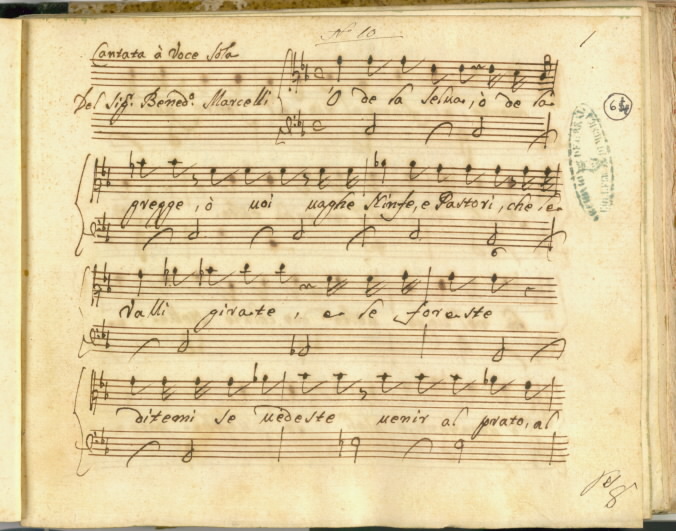 N.º 10
1
Cantata à Voce Sola
Del Sig.r Bened.o Marcelli
Ò de la selua, ò de la
gregge, ò uoi uaghe Ninfe, e Pastori, che le
Valli girate, e le foreste
ditemi se uedeste uenir al prato, al